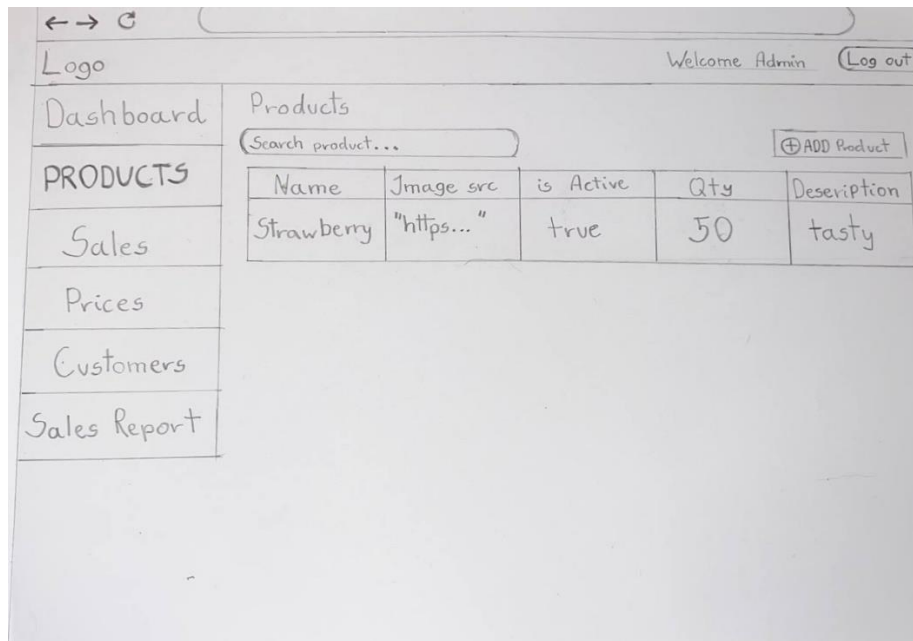 Logo
Welcome Admin
Log out
Dashboard
PRODUCTS
Sales
Prices
Customers
Sales Report
Products
Search product...
⊕ ADD Product
Name Image src is Active Qty Deseription
Strawberry "https..." true 50 tasty